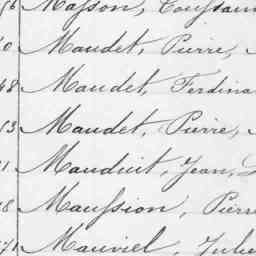 Masson, Toussain
Maudet, Pierre,
Maudet, Ferdina
13 Maudet, Pierre,
Mauduit, Jean, L
Maussion, Pierr
71 Mauviel, Julie